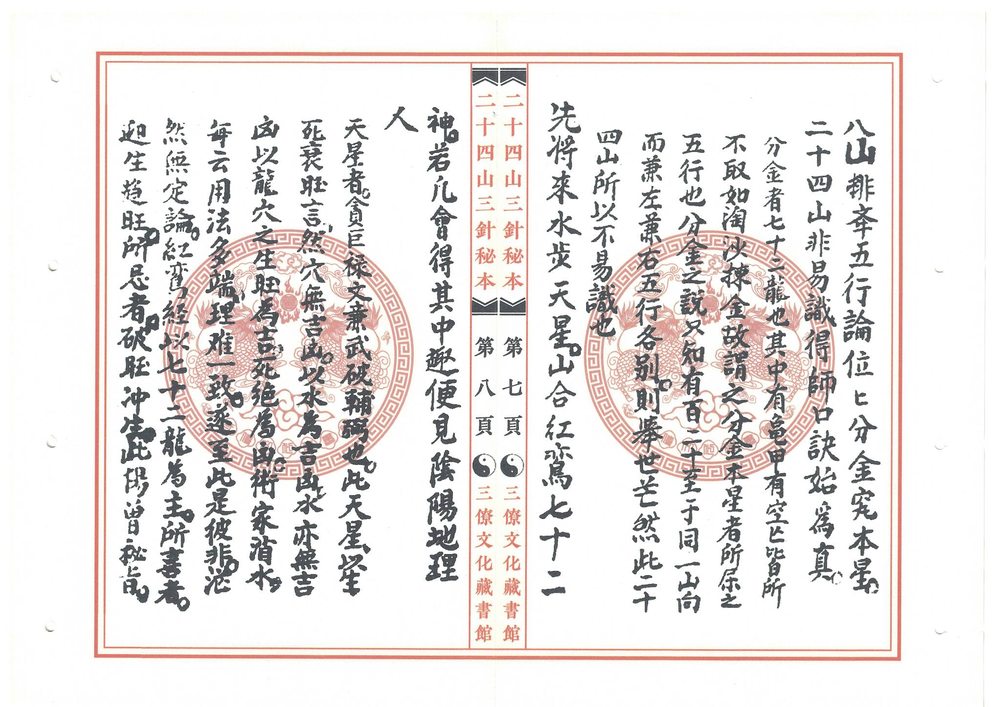 八山排來五行論位匕分金究本星
二十四山非易識得師口訣始為真
分金者七十二龍也其中有龜甲有空亡皆所
不取如淘沙揀金故謂之分金本星者所属之
五行也分金之說又知有百二十至于同一山向
而兼左兼右五行各別則舉世茫然此二十
四山所以不易識也
先將來水步天星山合紅鸞七十二
二十四山三針秘本
第七頁
三僚文化藏書館
二十四山三針秘本
第八頁
三僚文化藏書館
神若凡會得其中趣便見陰陽地理
人
天星者貪巨祿文廉武破輔弼也此天星以生
死衰旺言然穴無吉凶以水為吉凶水亦無吉
凶以龍穴之生旺為吉死絕為凶術家消水
每云用法多端理难一致遂至此是彼非茫
然無定論紅鸞經以七十二龍為主所喜者
迎生趋旺所忌者破旺冲生此楊曾秘旨